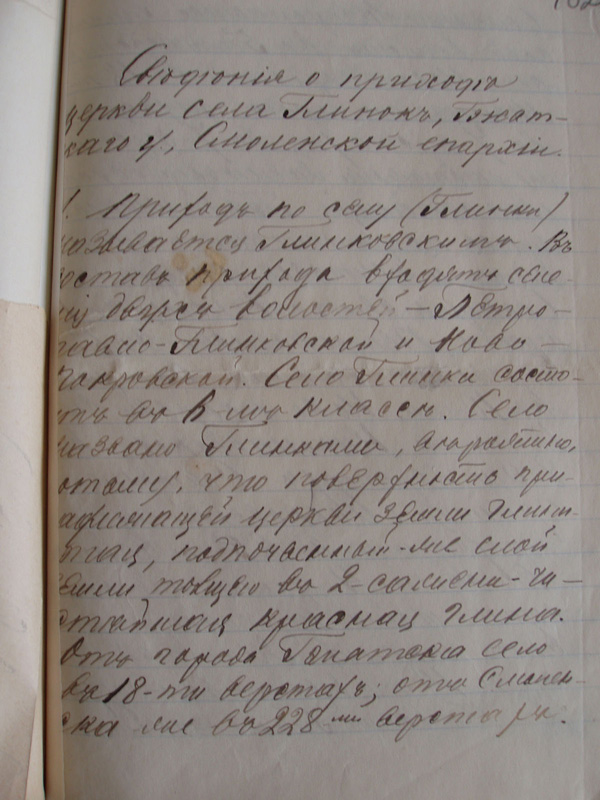 Свѣдѣнія о приходѣ
церкви села Глинокъ, Гжат-
скаго у, Смоленской епархіи.
1. Приходъ по селу (Глинки)
называется Глинковскимъ. Въ
составъ прихода входятъ селе-
нія двухъ волостей – Петро-
павло-Глинковской и Ново-
Покровской. Село Глинки состо-
итъ въ 6 мъ классѣ. Село
названо Глинками, вѣроятно,
потому, что поверхность при-
надлежащей церкви земли глини-
стая, подпочвенный-же слой
земли толщею въ 2 сажени – чи-
стѣйшая красная глина.
Отъ города Гжатска село
въ 18-ти верстахъ; отъ Смолен-
ска же въ 228 ми верстахъ.